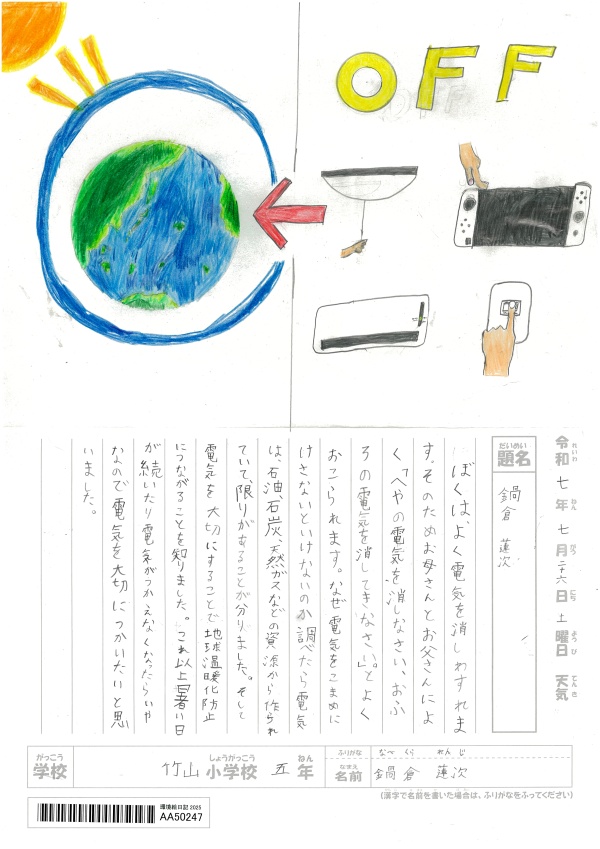 OFF
令和七年七月二十六日土曜日 天気
れいわ ねん がつ にち ようび てんき
だいめい
題名
鍋倉 蓮次
ぼくは、よく電気を消しわすれま
す。そのためお母さんとお父さんによ
く「へやの電気を消しなさい、おふ
ろの電気を消してきなさい。」とよく
おこられます。なぜ電気をこまめに
けさないといけないのか調べたら電気
は、石油、石炭、天然ガスなどの資源から作られ
ていて、限りがあることが分りました。そして
電気を大切にすることで地球温暖化防止
につながることを知りました。これ以上暑い日
が続いたり電気がつかえなくなったらいや
なので電気を大切につかいたいと思
いました。
がっこう
学校
しょうがっこう ねん
竹山小学校 五年
ふりがな
なべ くら れん じ
なまえ
名前
鍋倉 蓮次
(漢字で名前を書いた場合は、ふりがなをふってください)
環境絵日記 2025
AA50247